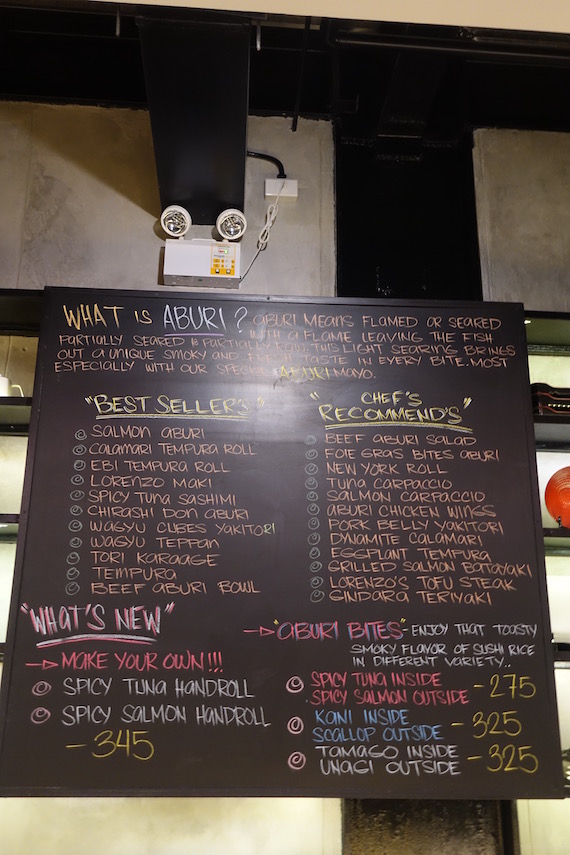 WHAT IS ABURI ? ABURI MEANS FLAMED OR SEARED
PARTIALLY SEARED & PARTIALLY WITH A FLAME LEAVING THE FISH
OUT A UNIQUE SMOKY AND TASTE THIS LIGHT SEARING BRINGS
ESPECIALLY WITH OUR SPECIAL ABURI MAYO. IN EVERY BITE. MOST
"BEST SELLER'S"
SALMON ABURI
CALAMARI TEMPURA ROLL
EBI TEMPURA ROLL
LORENZO MAKI
SPICY TUNA SASHIMI
CHIRASHI DON ABURI
WAGYU CUBES YAKITORI
WAGYU TEPPAN
TORI KARAAGE
TEMPURA
BEEF ABURI BOWL
"CHEF'S
RECOMMEND'S"
BEEF ABURI SALAD
FOIE GRAS BITES ABURI
NEW YORK ROLL
TUNA CARPACCIO
SALMON CARPACCIO
ABURI CHICKEN WINGS
PORK BELLY YAKITORI
DYNAMITE CALAMARI
EGGPLANT TEMPURA
GRILLED SALMON BATAYAKI
LORENZO'S TOFU STEAK
GINDARA TERIYAKI
"WHAT'S NEW"
MAKE YOUR OWN!!!
SPICY TUNA HANDROLL
SPICY SALMON HANDROLL
- 345
"ABURI BITES" - ENJOY THAT TOASTY
SMOKY FLAVOR OF SUSHI RICE
IN DIFFERENT VARIETY..
SPICY TUNA INSIDE
SPICY SALMON OUTSIDE - 275
KANI INSIDE
SCALLOP OUTSIDE - 325
TAMAGO INSIDE
UNAGI OUTSIDE - 325